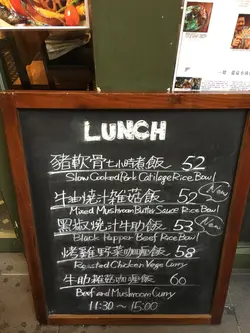 LUNCH
豬軟骨七小時煮飯 52
Slow Cooked Pork Catilage Rice Bowl
牛油燒汁雜菇飯 52 New
Mixed Mushroom Butter Sauce Rice Bowl
黑椒燒汁牛肋飯 53 New
Black Pepper Beef Rice Bowl
烤雞野菜咖喱飯 58
Roasted Chicken Vege Curry
牛肋雜菇咖喱飯 60
Beef and Mushroom Curry
11:30 ~ 15:00